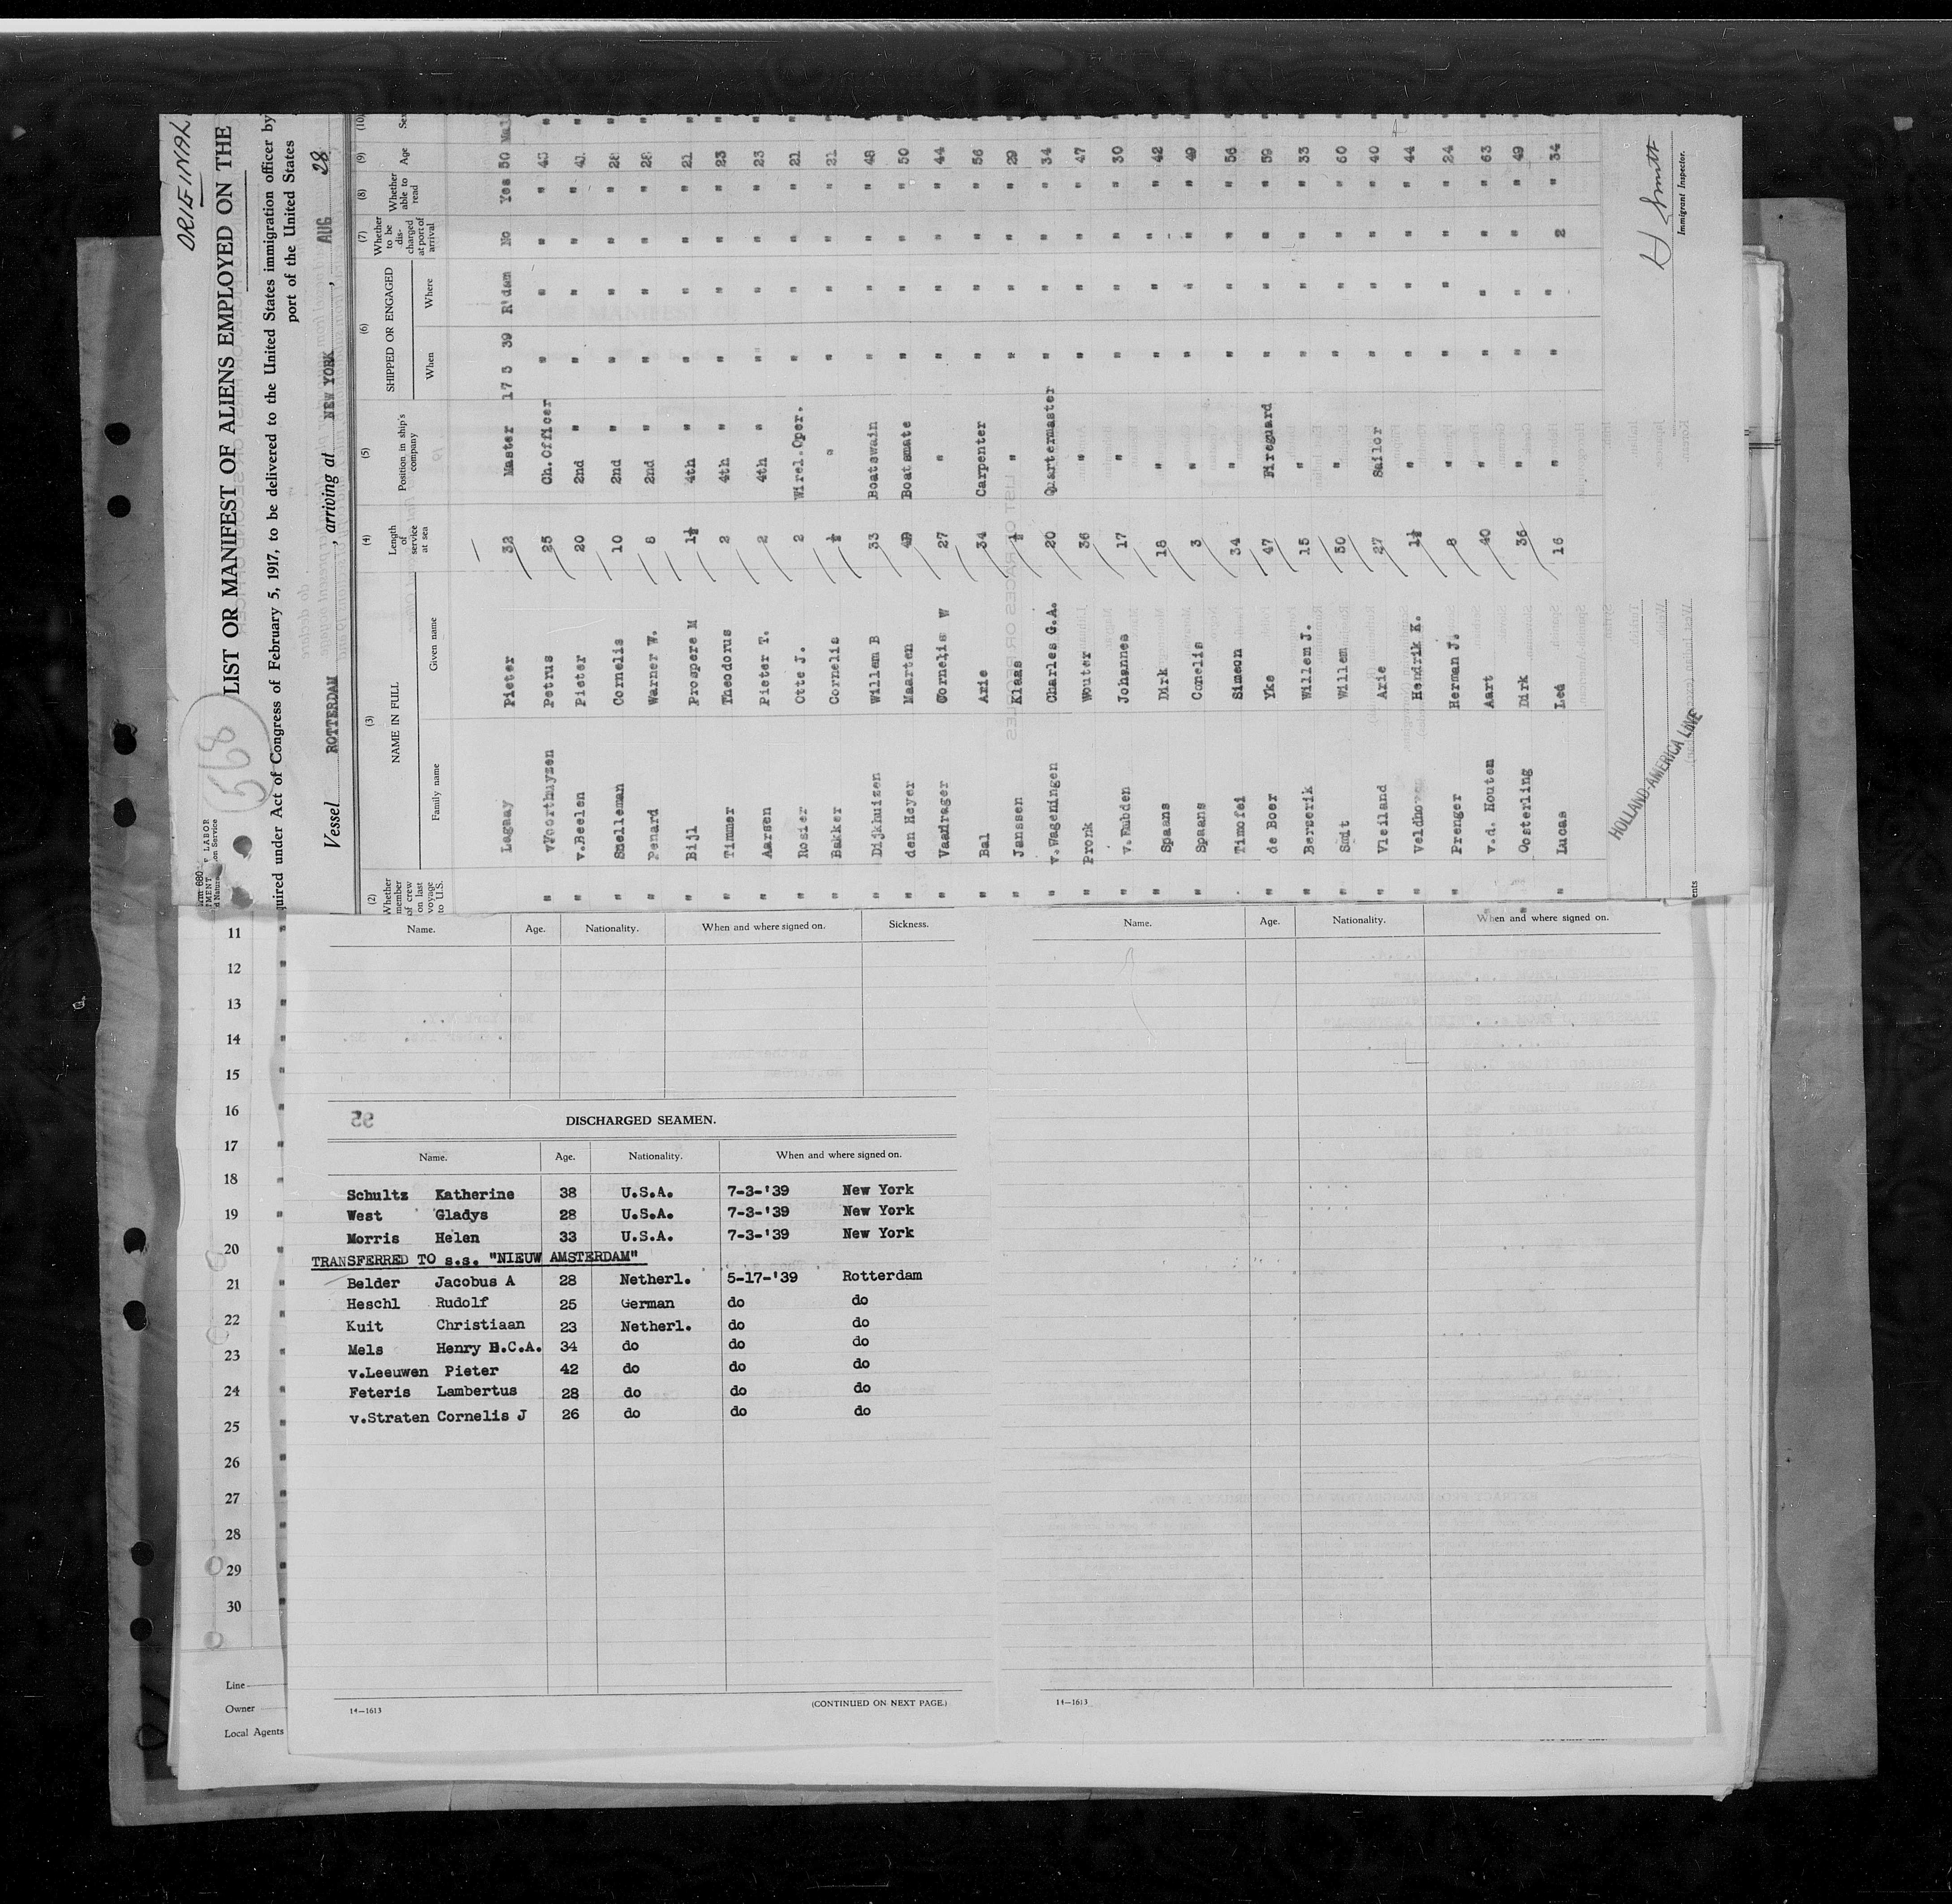 ORIGINAL
568
LIST OR MANIFEST OF ALIENS EMPLOYED ON THE
quired under Act of Congress of February 5, 1917, to be delivered to the United States immigration officer by
port of the United States
Vessel ROTTERDAM, arriving at NEW YORK, AUG 28
(2) (3) (4) (5) (6) (7) (8) (9) (10)
Whether member of crew on last voyage to U.S. NAME IN FULL Family name Given name Length of service at sea Position in ship's company SHIPPED OR ENGAGED When Where Whether to be discharged at port of arrival Whether able to read Age Sex
Lagaay Pieter 32 Master 17 3 39 R'dam No Yes 50
" v Voorthuyzen Petrus 25 Ch.Officer " " " "
" v.Beelen Pieter 20 2nd " " " " "
" Snelleman Cornelis 10 2nd " " " " " 28 "
" Penard Warner W. 8 2nd " " " " " 28 "
" Bijl Prospere M 1½ 4th " " " " " 21 "
" Timmer Theodorus 2 4th " " " " " 23 "
" Aarsen Pieter T. 2 4th " " " " " 23 "
" Rosier Otte J. 2 Wirel.Oper. " " " " 21 "
" Bakker Cornelis ½ " " " " " 21 "
" Dijkhuizen Willem B 33 Boatswain " " " " 48 "
" den Heyer Maarten Boatsmate " " " " 50 "
" Vaandrager Cornelis W 27 " " " " " 44 "
" Bal Arie 34 Carpenter " " " " 56 "
" Janssen Klaas ½ " " " " " 29 "
" v.Wageningen Charles G.A. 20 Quartermaster " " " " 34 "
" Pronk Wouter 36 " " " " " 47 "
" v.Embden Johannes 17 " " " " " 30 "
" Spaans Dirk 18 " " " " " 42 "
" Spaans Conelis 3 " " " " " 49 "
Timofei Simeon 34 " " " " " 56 "
" de Boer Yke 47 Fireguard " " " " 59 "
" Berzerik Willem J. 15 " " " " " 33 "
" Smit Willem 50 " " " " " 60 "
" Vleiland Arie 27 Sailor " " " " 40 "
" Veldhoven Hendrik K. 1½ " " " " " 44 "
" Prenger Herman J. 8 " " " " " 24 "
v.d. Houten Aart 40 " " " " " 63 "
" Oosterling Dirk 36 " " " " " 49 "
" Lucas Leo 16 " " " 2 " 34 "
HOLLAND-AMERICA LINE
H Smith
Immigrant Inspector.
11
12
13
14
15
16
17
18
19
20
21
22
23
24
25
26
27
28
29
30
Line
Owner
Local Agents
Name. Age. Nationality. When and where signed on. Sickness.
95
DISCHARGED SEAMEN.
Name. Age. Nationality. When and where signed on.
Schultz Katherine 38 U.S.A. 7-3-'39 New York
West Gladys 28 U.S.A. 7-3-'39 New York
Morris Helen 33 U.S.A. 7-3-'39 New York
TRANSFERRED TO s.s. "NIEUW AMSTERDAM"
Belder Jacobus A 28 Netherl. 5-17-'39 Rotterdam
Heschl Rudolf 25 German do do
Kuit Christiaan 23 Netherl. do do
Mels Henry H.C.A. 34 do do do
v.Leeuwen Pieter 42 do do do
Feteris Lambertus 28 do do do
v.Straten Cornelis J 26 do do do
14—1613
(CONTINUED ON NEXT PAGE.)
Name. Age. Nationality. When and where signed on.
14—1613